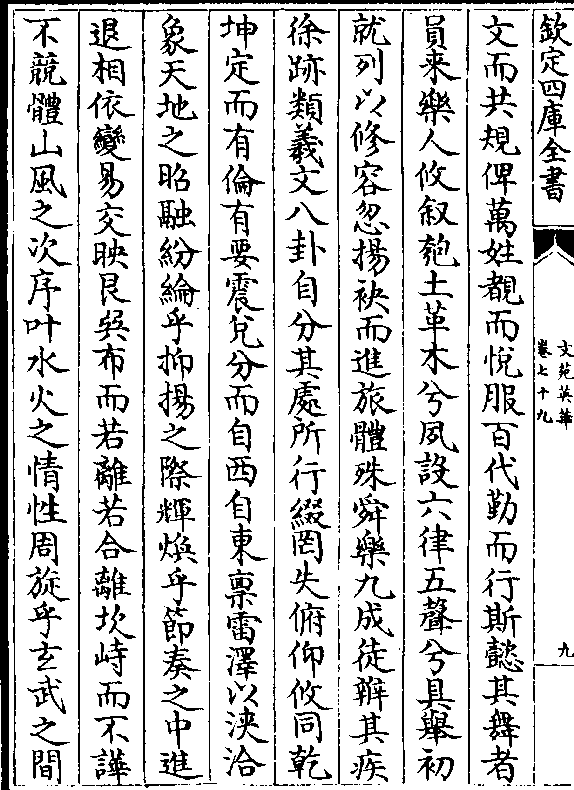 欽定四庫全書
文苑英華
卷七十九
九
文而共規俾萬姓覩而悦服百代勤而行斯懿其舞者
員来樂人攸叙匏土革木兮夙設六律五聲兮具舉初
就列以修容忽揚袂而進旅體殊舜樂九成徒辨其疾
徐跡類羲文八卦自分其處所行綴罔失俯仰攸同乾
坤定而有倫有要震兑分而自西自東禀雷澤以浹洽
象天地之昭融紛綸乎抑揚之際輝煥乎節奏之中進
退相依變易交映艮巽布而若離若合離坎峙而不譁
不競體山風之次序叶水火之情性周旋乎玄武之間